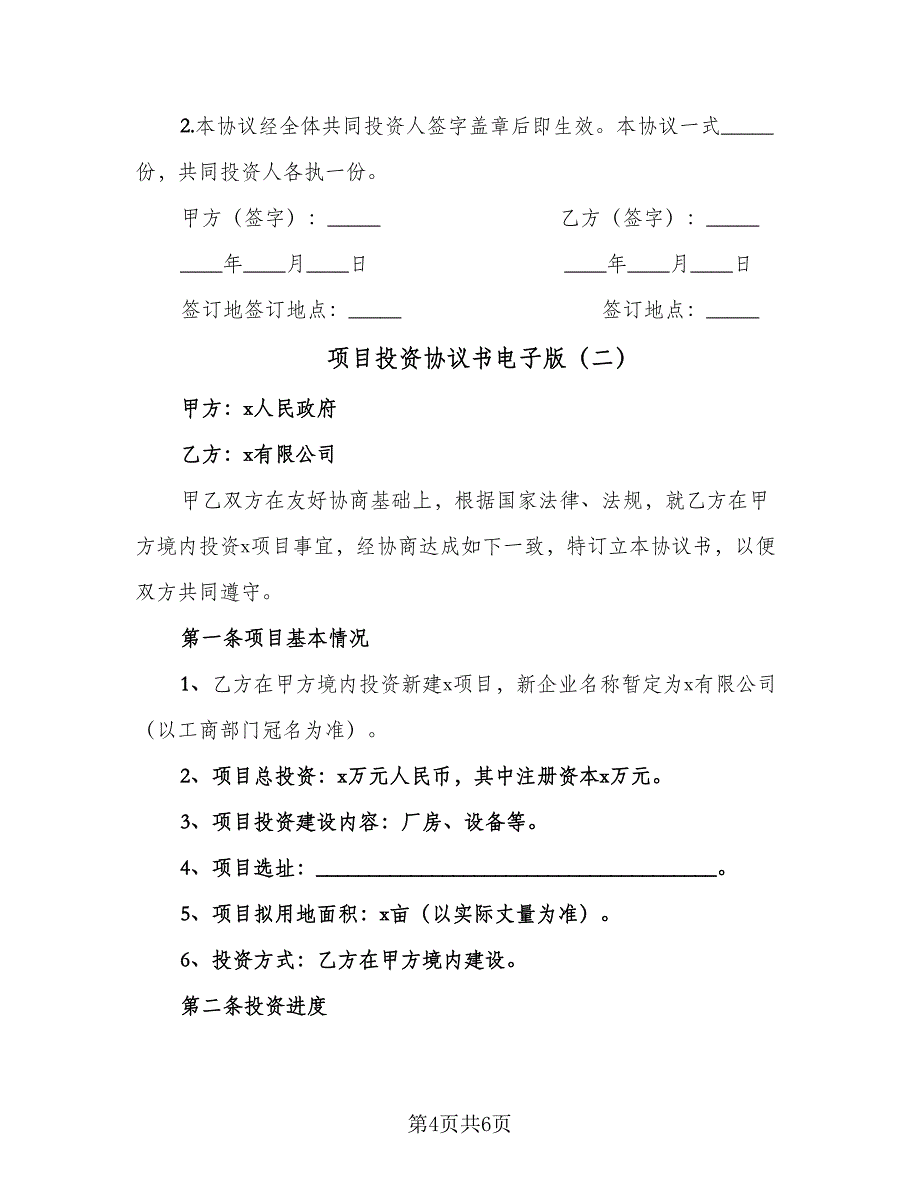 2.本协议经全体共同投资人签字盖章后即生效。本协议一式_____
份，共同投资人各执一份。
甲方（签字）：_____ 乙方（签字）：_____
____年____月____日 ____年____月____日
签订地签订地点：_____ 签订地点：_____
项目投资协议书电子版（二）
甲方：x人民政府
乙方：x有限公司
甲乙双方在友好协商基础上，根据国家法律、法规，就乙方在甲
方境内投资x项目事宜，经协商达成如下一致，特订立本协议书，以便
双方共同遵守。
第一条项目基本情况
1、乙方在甲方境内投资新建x项目，新企业名称暂定为x有限公司
（以工商部门冠名为准）。
2、项目总投资：x万元人民币，其中注册资本x万元。
3、项目投资建设内容：厂房、设备等。
4、项目选址：______________________________________。
5、项目拟用地面积：x亩（以实际丈量为准）。
6、投资方式：乙方在甲方境内建设。
第二条投资进度
第4页共6页